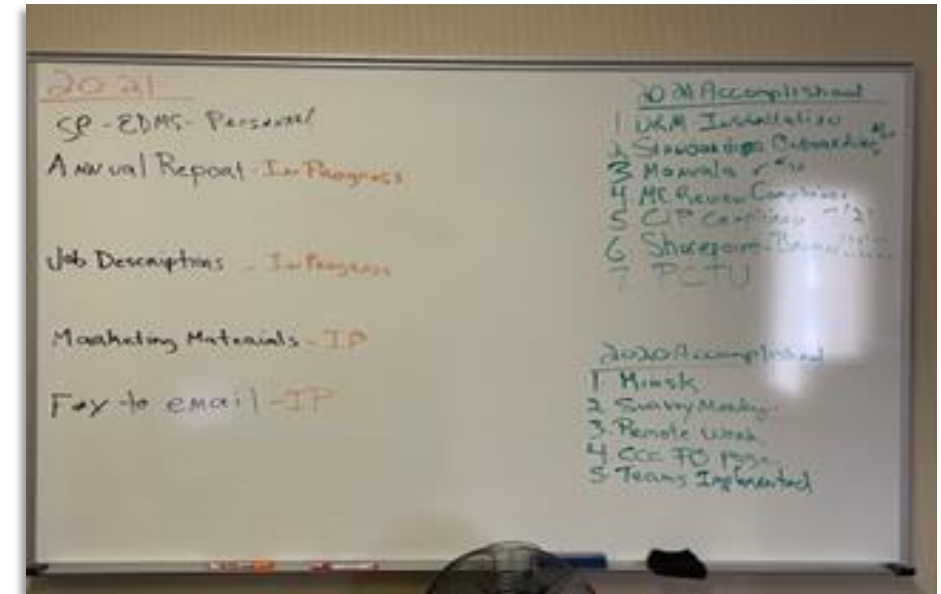 2021
SP - EDMS - Personnel
Annual Report - In Progress
Job Descriptions - In Progress
Marketing Materials - IP
Fax to email - IP
2021 Accomplished
1 Installation
2
3 Manuals
4 Review
5 CIP
6 Sharepoint
7 PCTU
2020 Accomplished
1
2 Survey Monkey
3 Remote Work
4 CCC
5 Teams Implemented